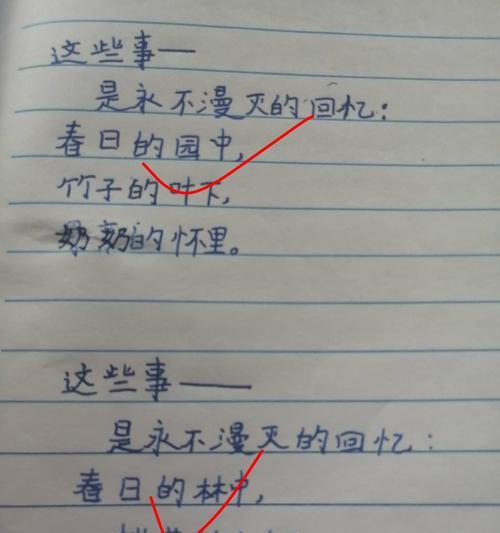 这些事——
是永不漫灭的回忆：
春日的园中，
竹子的叶下，
奶奶的怀里。
这些事——
是永不漫灭的回忆：
春日的林中，